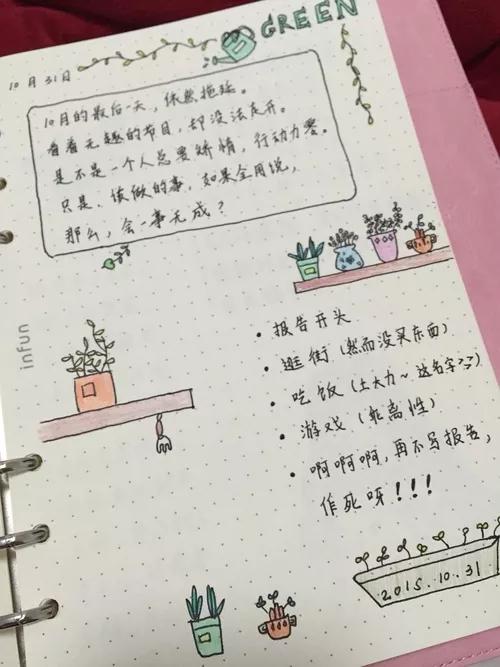 GREEN
10月31日
10月的最后一天，依然拖延。
看着无趣的节目，却没法走开。
是不是一个人总要矫情，行动力零。
只是，该做的事，如果全用说，
那么，会一事无成？
infun
• 报告开头
• 逛街（然而没买东西）
• 吃饭（土大力~这名字??）
• 游戏（距离性）
• 啊啊啊，再不写报告，
作死呀！！！
2015.10.31